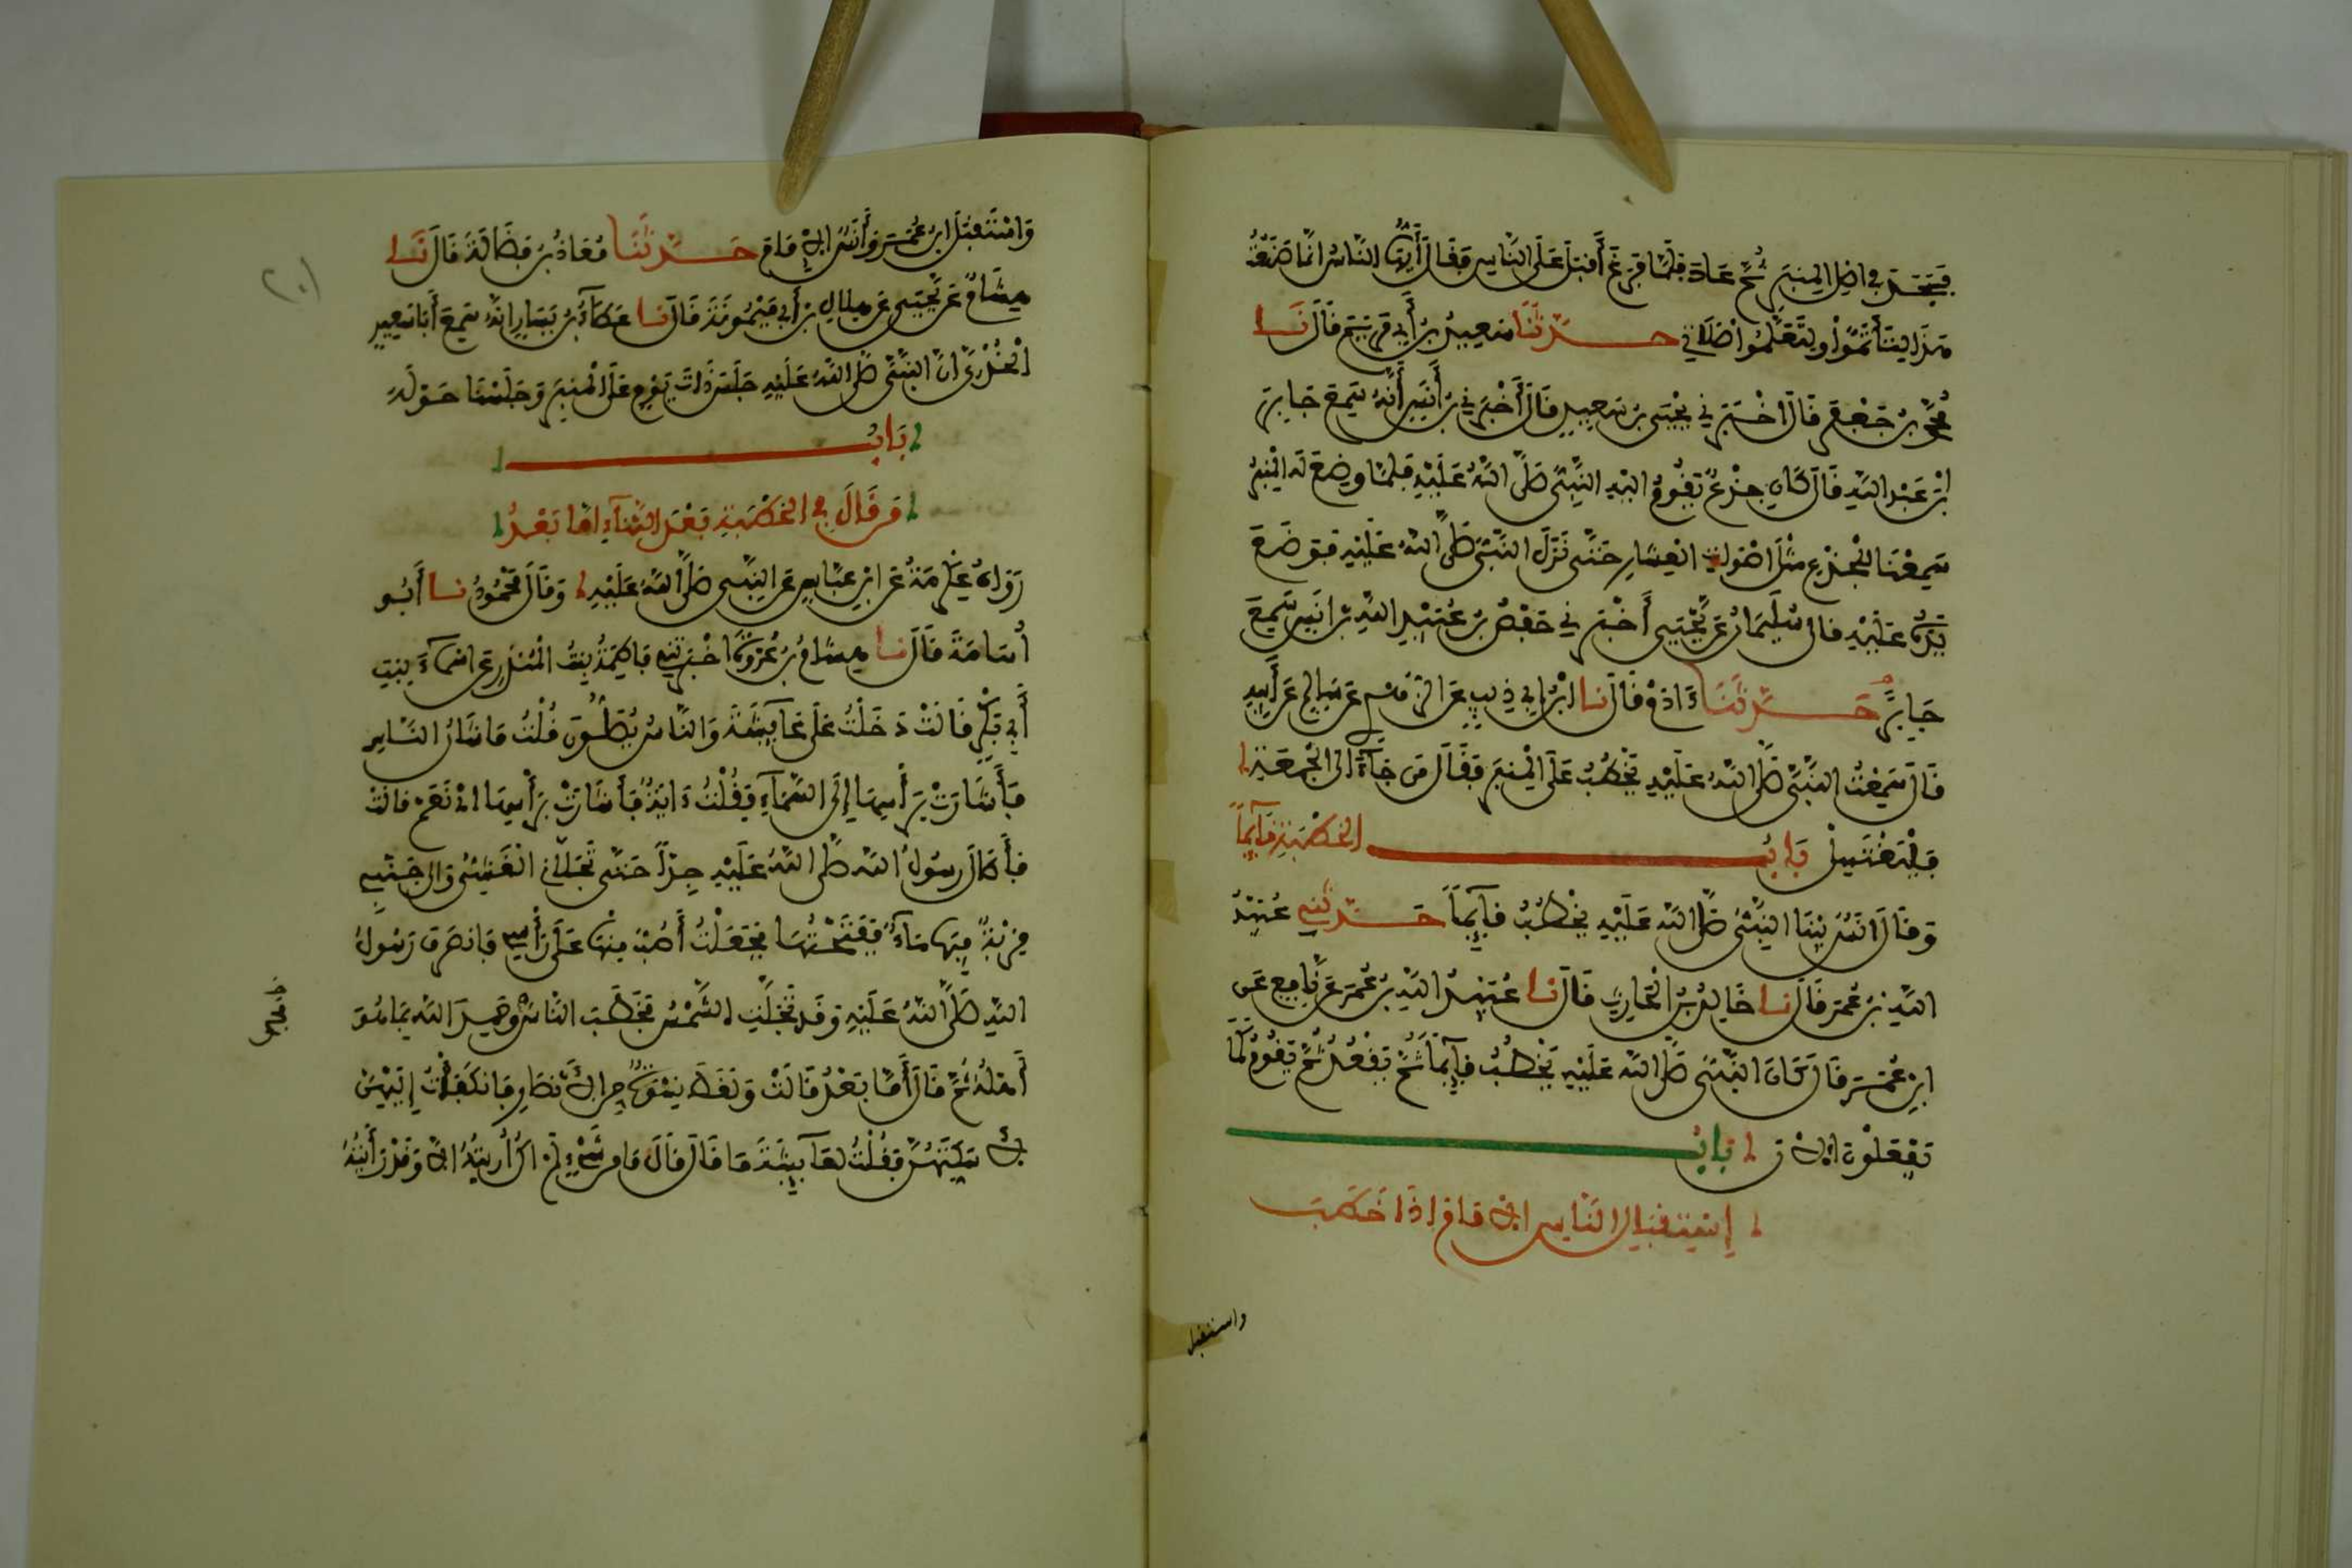 فَسَجَدَ في اصل المنبر ثُمَّ عاد فلمّا فرغ أقبل على الناس فقال أيّها الناس انما صنعتُ
هذا لتأتمّوا ولتعلّموا صلاتي حدّثنا سعيد بن أبي مريم قال نا
محمد بن جعفر قال اخبرني يحيى بن سعيد قال أخبرني بن أنس أنه سمع جابر
ابن عبد الله قال كان جذع يقوم اليه النبي صلى الله عليه فلما وضع له المنبر
سمعنا للجذع مثل اصوات العشار حتى نزل النبي صلى الله عليه فوضع
يده عليه قال سليمان عن يحيى أخبرني حفص بن عبيد الله بن انس سمع
جابرا حدّثنا ءادم قال نا ابن ابي ذيب عن الزهري عن سالم عن أبيه
قال سمعت النبي صلى الله عليه يخطب على المنبر فقال من جاء الى الجمعة
فليغتسل باب الخطبة قايما
وقال انس بينا النبي صلى الله عليه يخطب قايما حدثني عبيد
الله بن عمر قال نا خالد بن الحارث قال نا عبيد الله بن عمر عن نافع عن
ابن عمر قال كان النبي صلى الله عليه يخطب قايما ثم يقعد ثم يقوم كما
تفعلون الان باب
إستقبال الناس الامام اذا خطب
واستقبل
واستقبل ابن عمر وأنس الامام حدّثنا معاذ بن فضالة قال نا
هشام عن يحيى عن هلال بن أبي ميمونة قال نا عطاء بن يسار انه سمع أبا سعيد
الخدري ان النبي صلى الله عليه جلس ذات يوم على المنبر وجلسنا حوله
باب
من قال في الخطبة بعد الثناء اما بعد
رواه عكرمة عن ابن عباس عن النبي صلى الله عليه وقال محمود نا أبو
أسامة قال نا هشام بن عروة اخبرتني فاطمة بنت المنذر عن اسماء بنت
أبي بكر قالت دخلت على عايشة والناس يصلون قلت ما شان الناس
فأشارت برأسها إلى السماء فقلت ءاية فأشارت برأسها اي نعم قالت
فأطال رسول الله صلى الله عليه جدا حتى تجلاني الغشي والى جنبي
قربة فيها ماء ففتحتها فجعلت أصب منها على رأسي فانصرف رسول
الله صلى الله عليه وقد تجلت الشمس فخطب الناس وحمد الله بما هو
أهله ثم قال أما بعد قالت ولغط نسوة من الانصار فانكفأت إليهن
لاسكتهن فقلت لعايشة ما قال قالت قال ما من شيء لم اكن أريته الا وقد رأيته